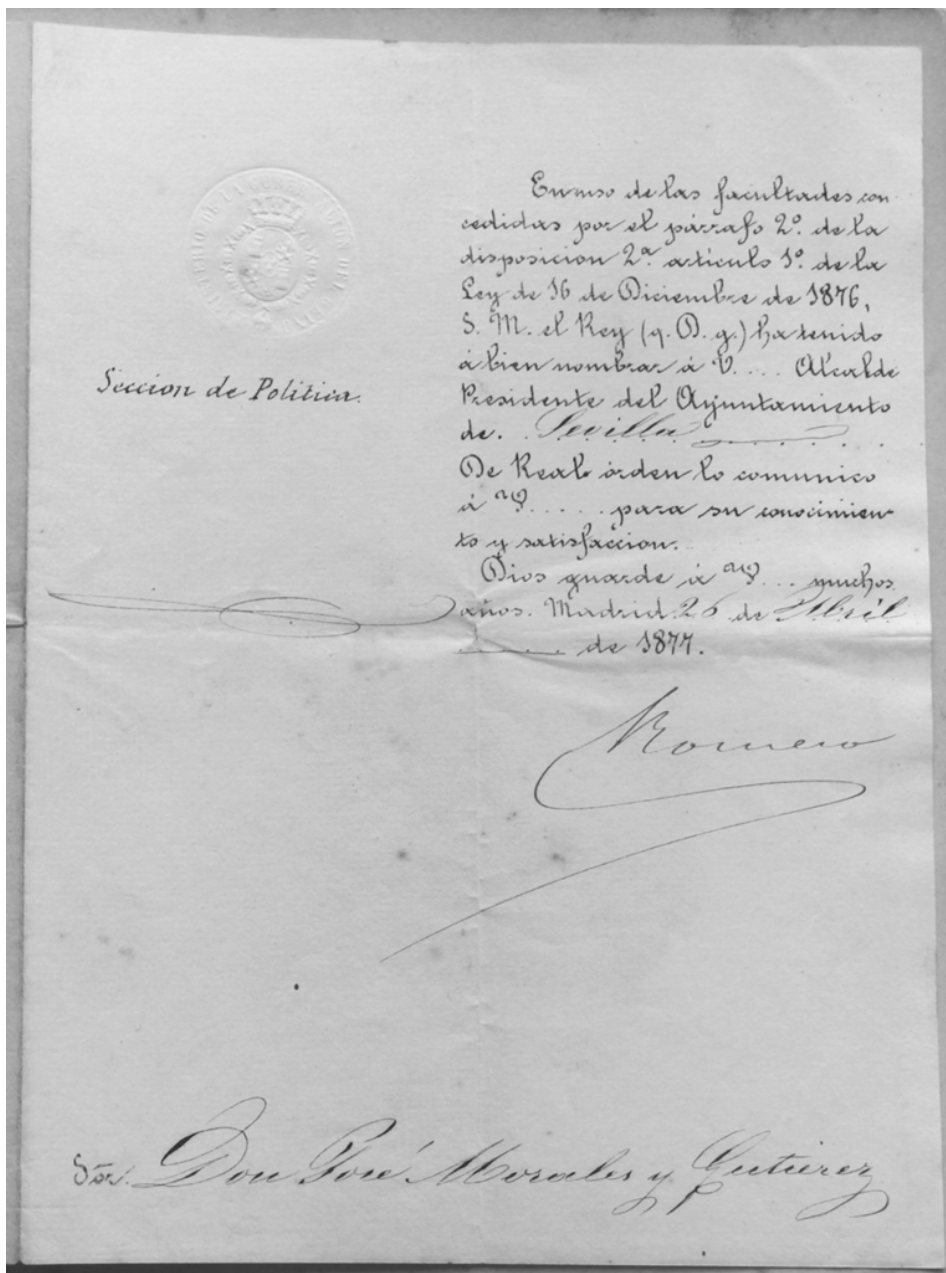 MINISTERIO DE LA GOBERNACIÓN DEL REINO
Seccion de Politica.
En uso de las facultades con-
cedidas por el párrafo 2º. de la
disposicion 2ª. artículo 1º. de la
Ley de 16 de Diciembre de 1876,
S. M. el Rey (q. D. g.) ha tenido
á bien nombrar á V.... Alcalde
Presidente del Ayuntamiento
de. Sevilla
De Real órden lo comunico
á V..... para su conocimien-
to y satisfaccion.
Dios guarde á V... muchos
años. Madrid 26 de Abril
de 1877.
Romero
Sor. Don José Morales y Gutierez